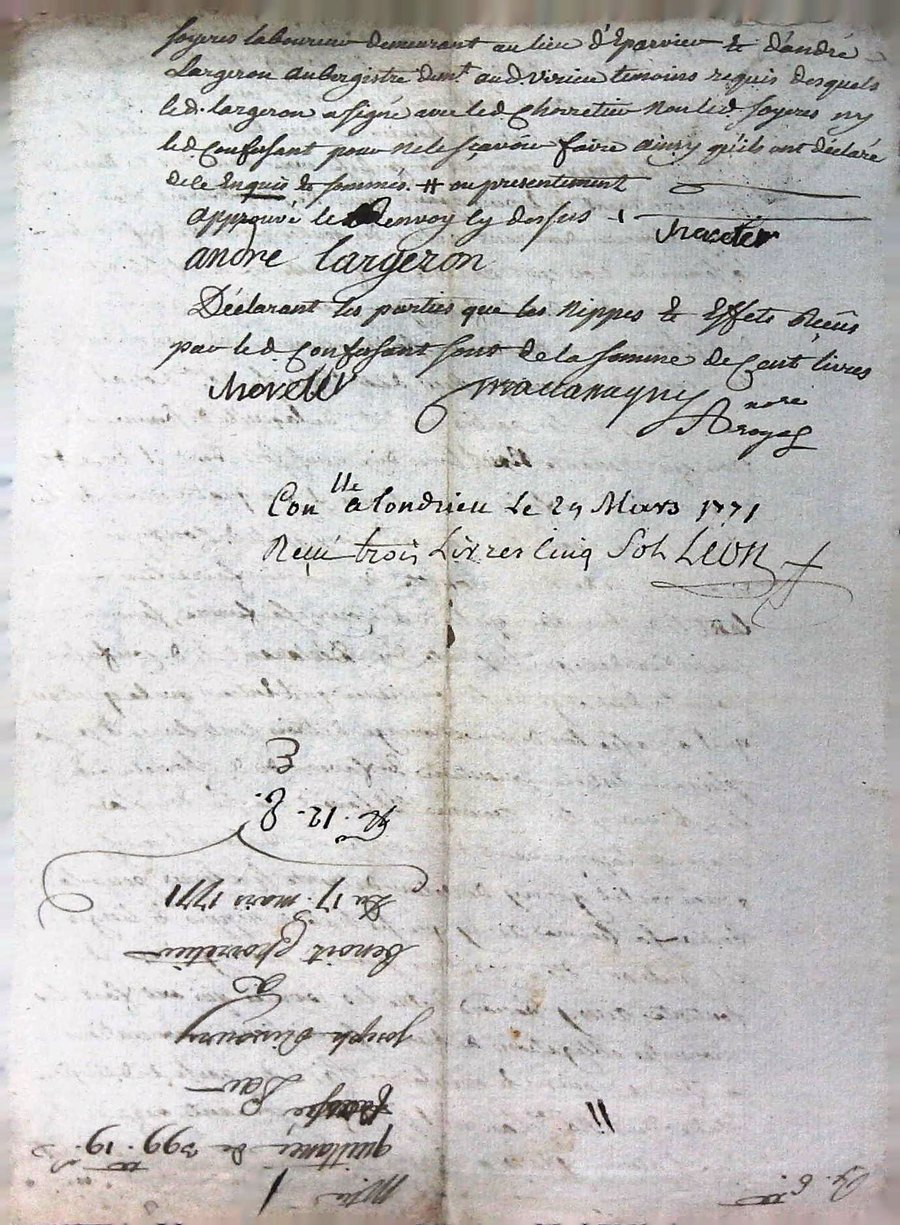 foyeres laboureur demeurant au lieu d'Eparvieu & d'andré
Largeron aubergistre demt. aud. virieu temoins requis desquels
led. largeron a signé avec led. Chorretier non led. foyeres ny
led. Confessant pour ne le sçavoir faire ainsy qu'ils ont déclaré
de ce Enquis & sommés. # ou presentement
approuvé le Renvoy cy dessus
andré largeron
Déclarant les parties que les Nippes & Effets Reçûs
par led. Confessant sont de la somme de Cent livres
Con lle a Condrieu Le 24 Mars 1771
Reçû trois Livres Cinq Sols LEON
E
12. 8.
Du 17. mars 1771
benoit chorretier
a
joseph
Par
quittance de 399. 19.